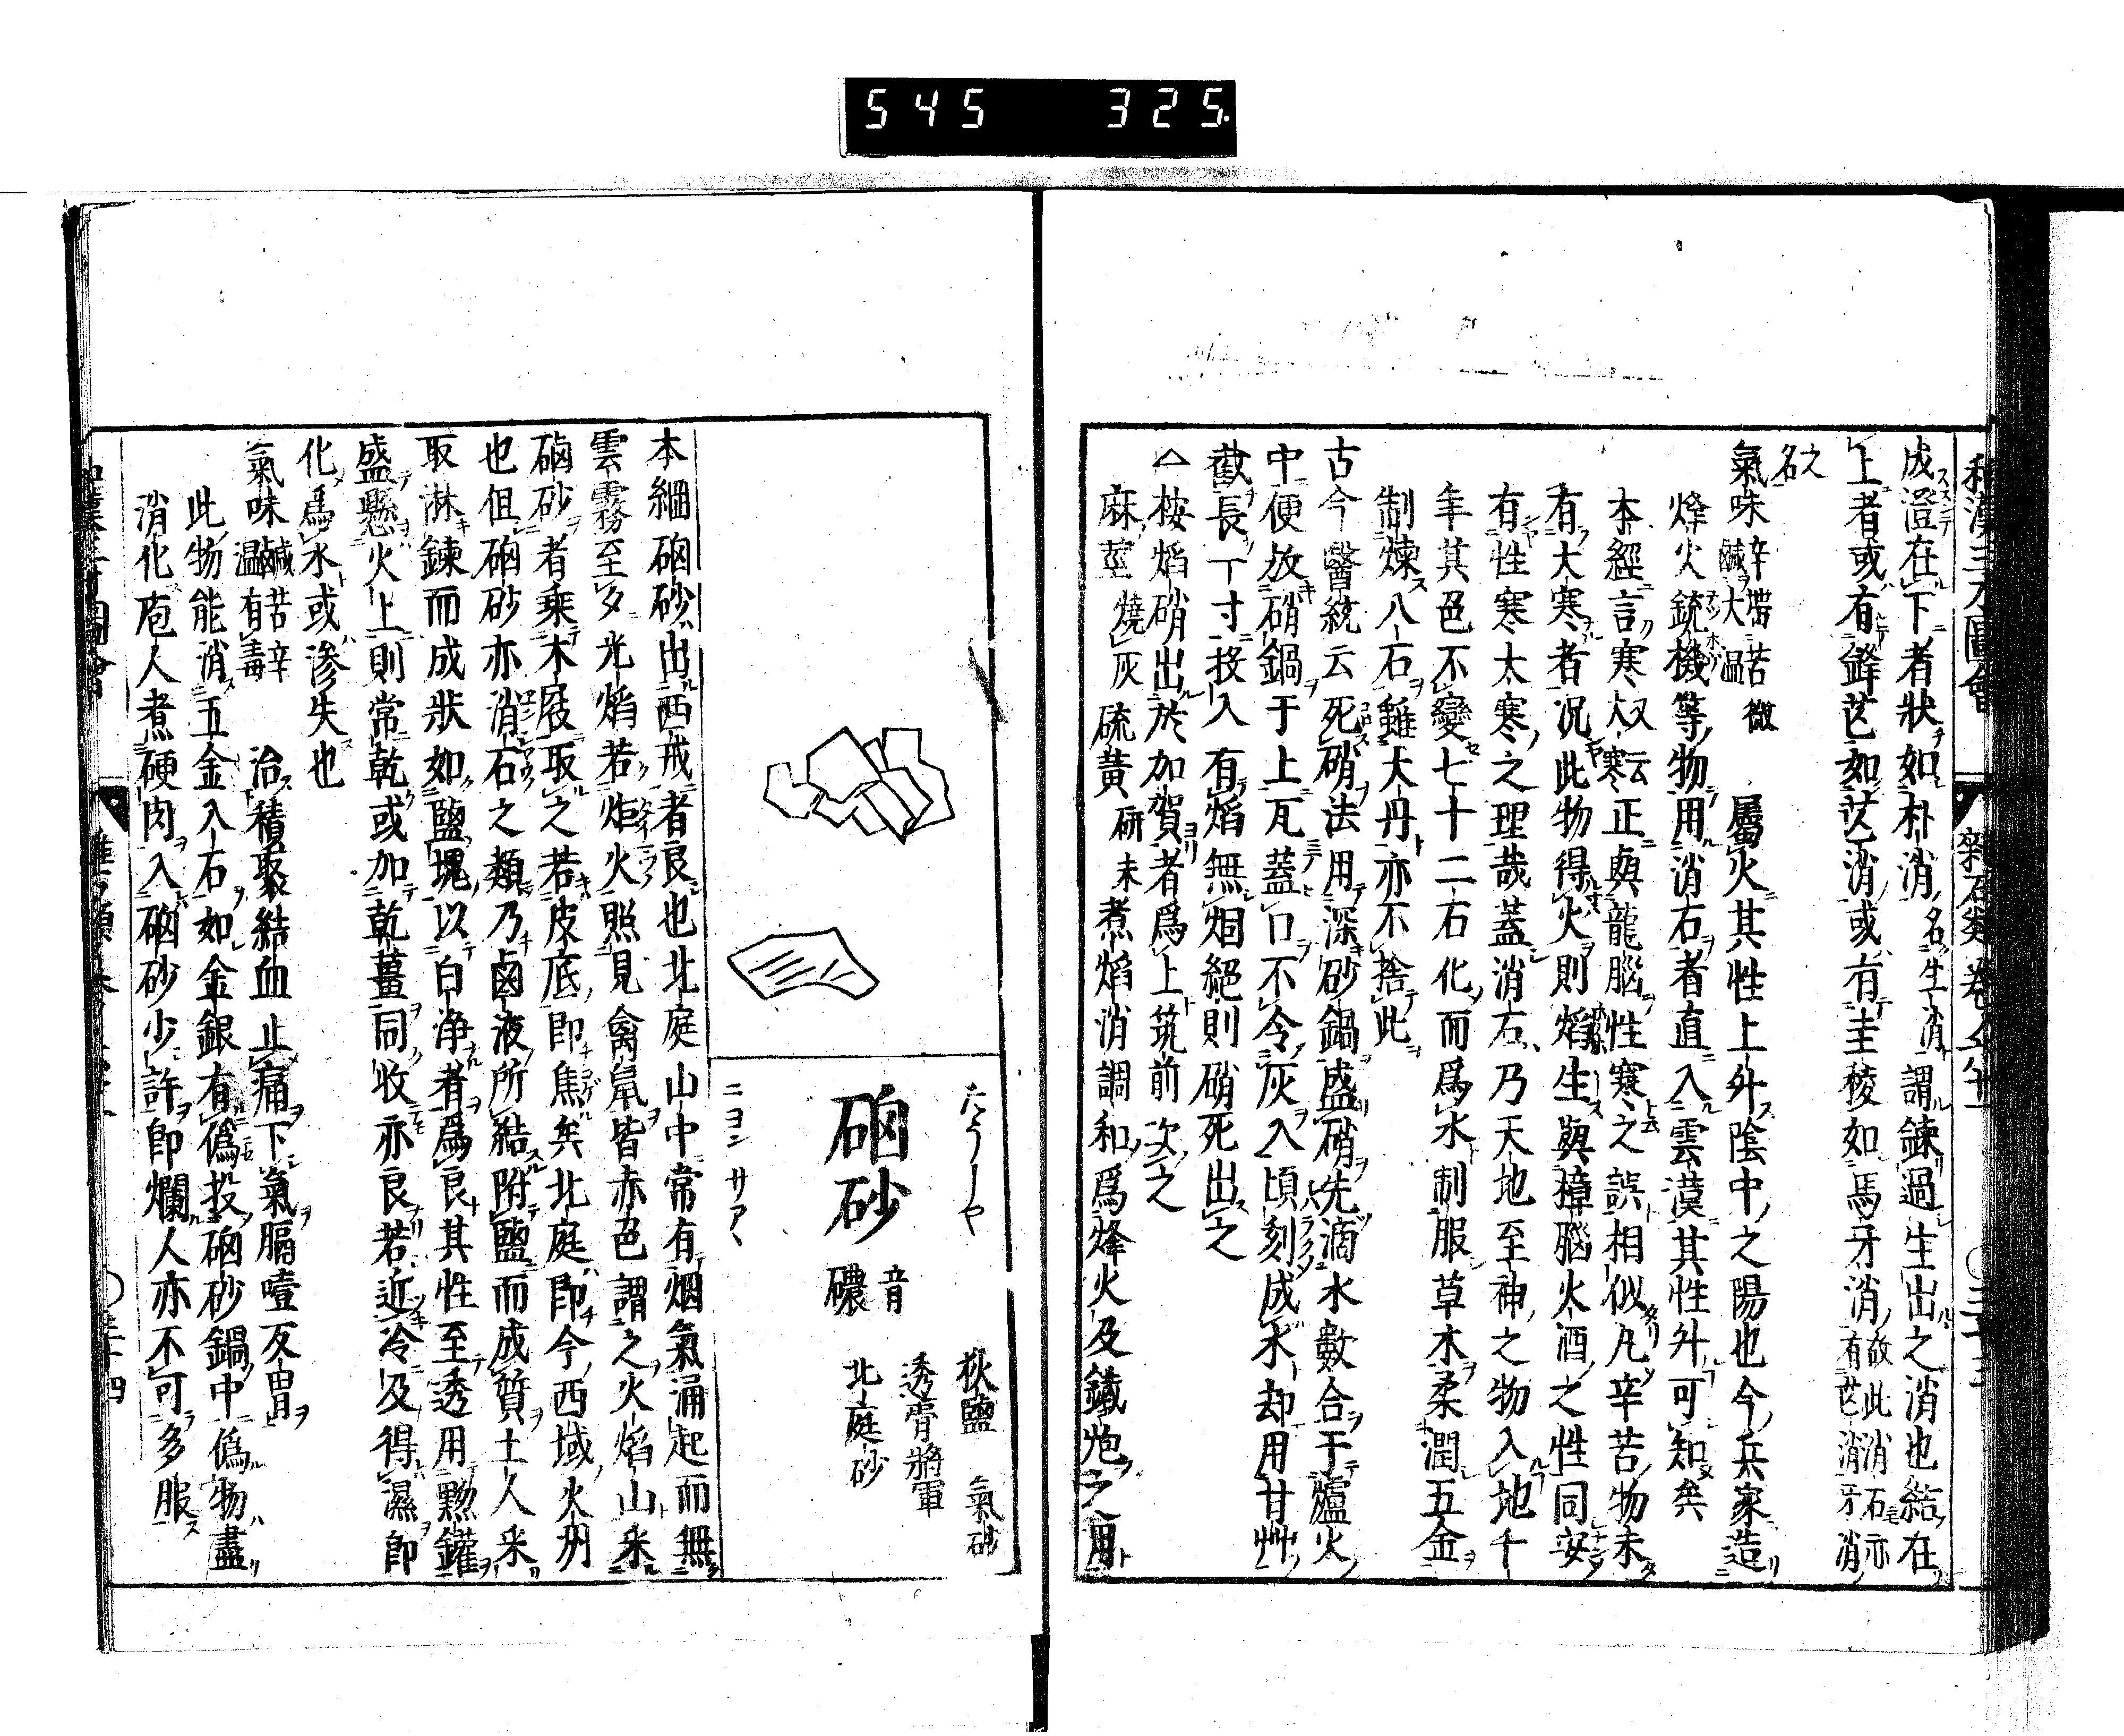 545 325.
和漢三才圖會 雜石類 卷六十一 ○三十三
成澄在下者狀如朴消名生消謂鍊過生出之消也結在
上者或有鋒芒如芒消或有圭稜如馬牙消故此消石亦有芒消牙消
之名
氣味辛帶苦微鹹大温 屬火其性上升陰中之陽也今兵家造
烽火銃機等物用消石者直入雲漢其性升可知矣
本經言寒又云大寒正與龍腦性寒之誤相似凡辛苦物未
有大寒者況此物得火則焰生與樟腦火酒之性同安
有性寒太寒之理哉蓋消石乃天地至神之物入地千
年其色不變七十二石化而爲水制服草木柔潤五金
制煉八石雖大丹亦不捨此
古今醫統云死硝法用深砂鍋盛硝先滴水數合于爐火
中便放硝鍋于上瓦蓋口不令灰入頃刻成水却用甘艸
截長一寸投入有焰無烟絕則硝死出之
△桉焰硝出於加賀者爲上筑前次之
麻莖燒灰硫黃研末煮焰消調和爲烽火及鐵炮之用
たうしや
硇砂 音硵
ニヨン サアヽ
狄鹽 氣砂
透骨將軍
北庭砂
本綱硇砂出西戎者良也北庭山中常有烟氣涌起而無
雲霧至夕光焰若炬火照見禽鼠皆赤色謂之火焰山采
硇砂者乘木屐取之若皮底即焦矣北庭即今西域火州
也但硇砂亦消石之類乃鹵液所結附鹽而成質土人采
取淋鍊而成狀如鹽塊以白淨者爲良其性至透用黝罐
盛懸火上則常乾或加乾薑同收亦良若近冷及得濕即
化爲水或滲失也
氣味鹹苦辛温有毒 治積聚結血止痛下氣膈噎反胃
此物能消五金入石如金銀有僞投硇砂鍋中僞物盡
消化庖人煮硬肉入硇砂少許即爛人亦不可多服